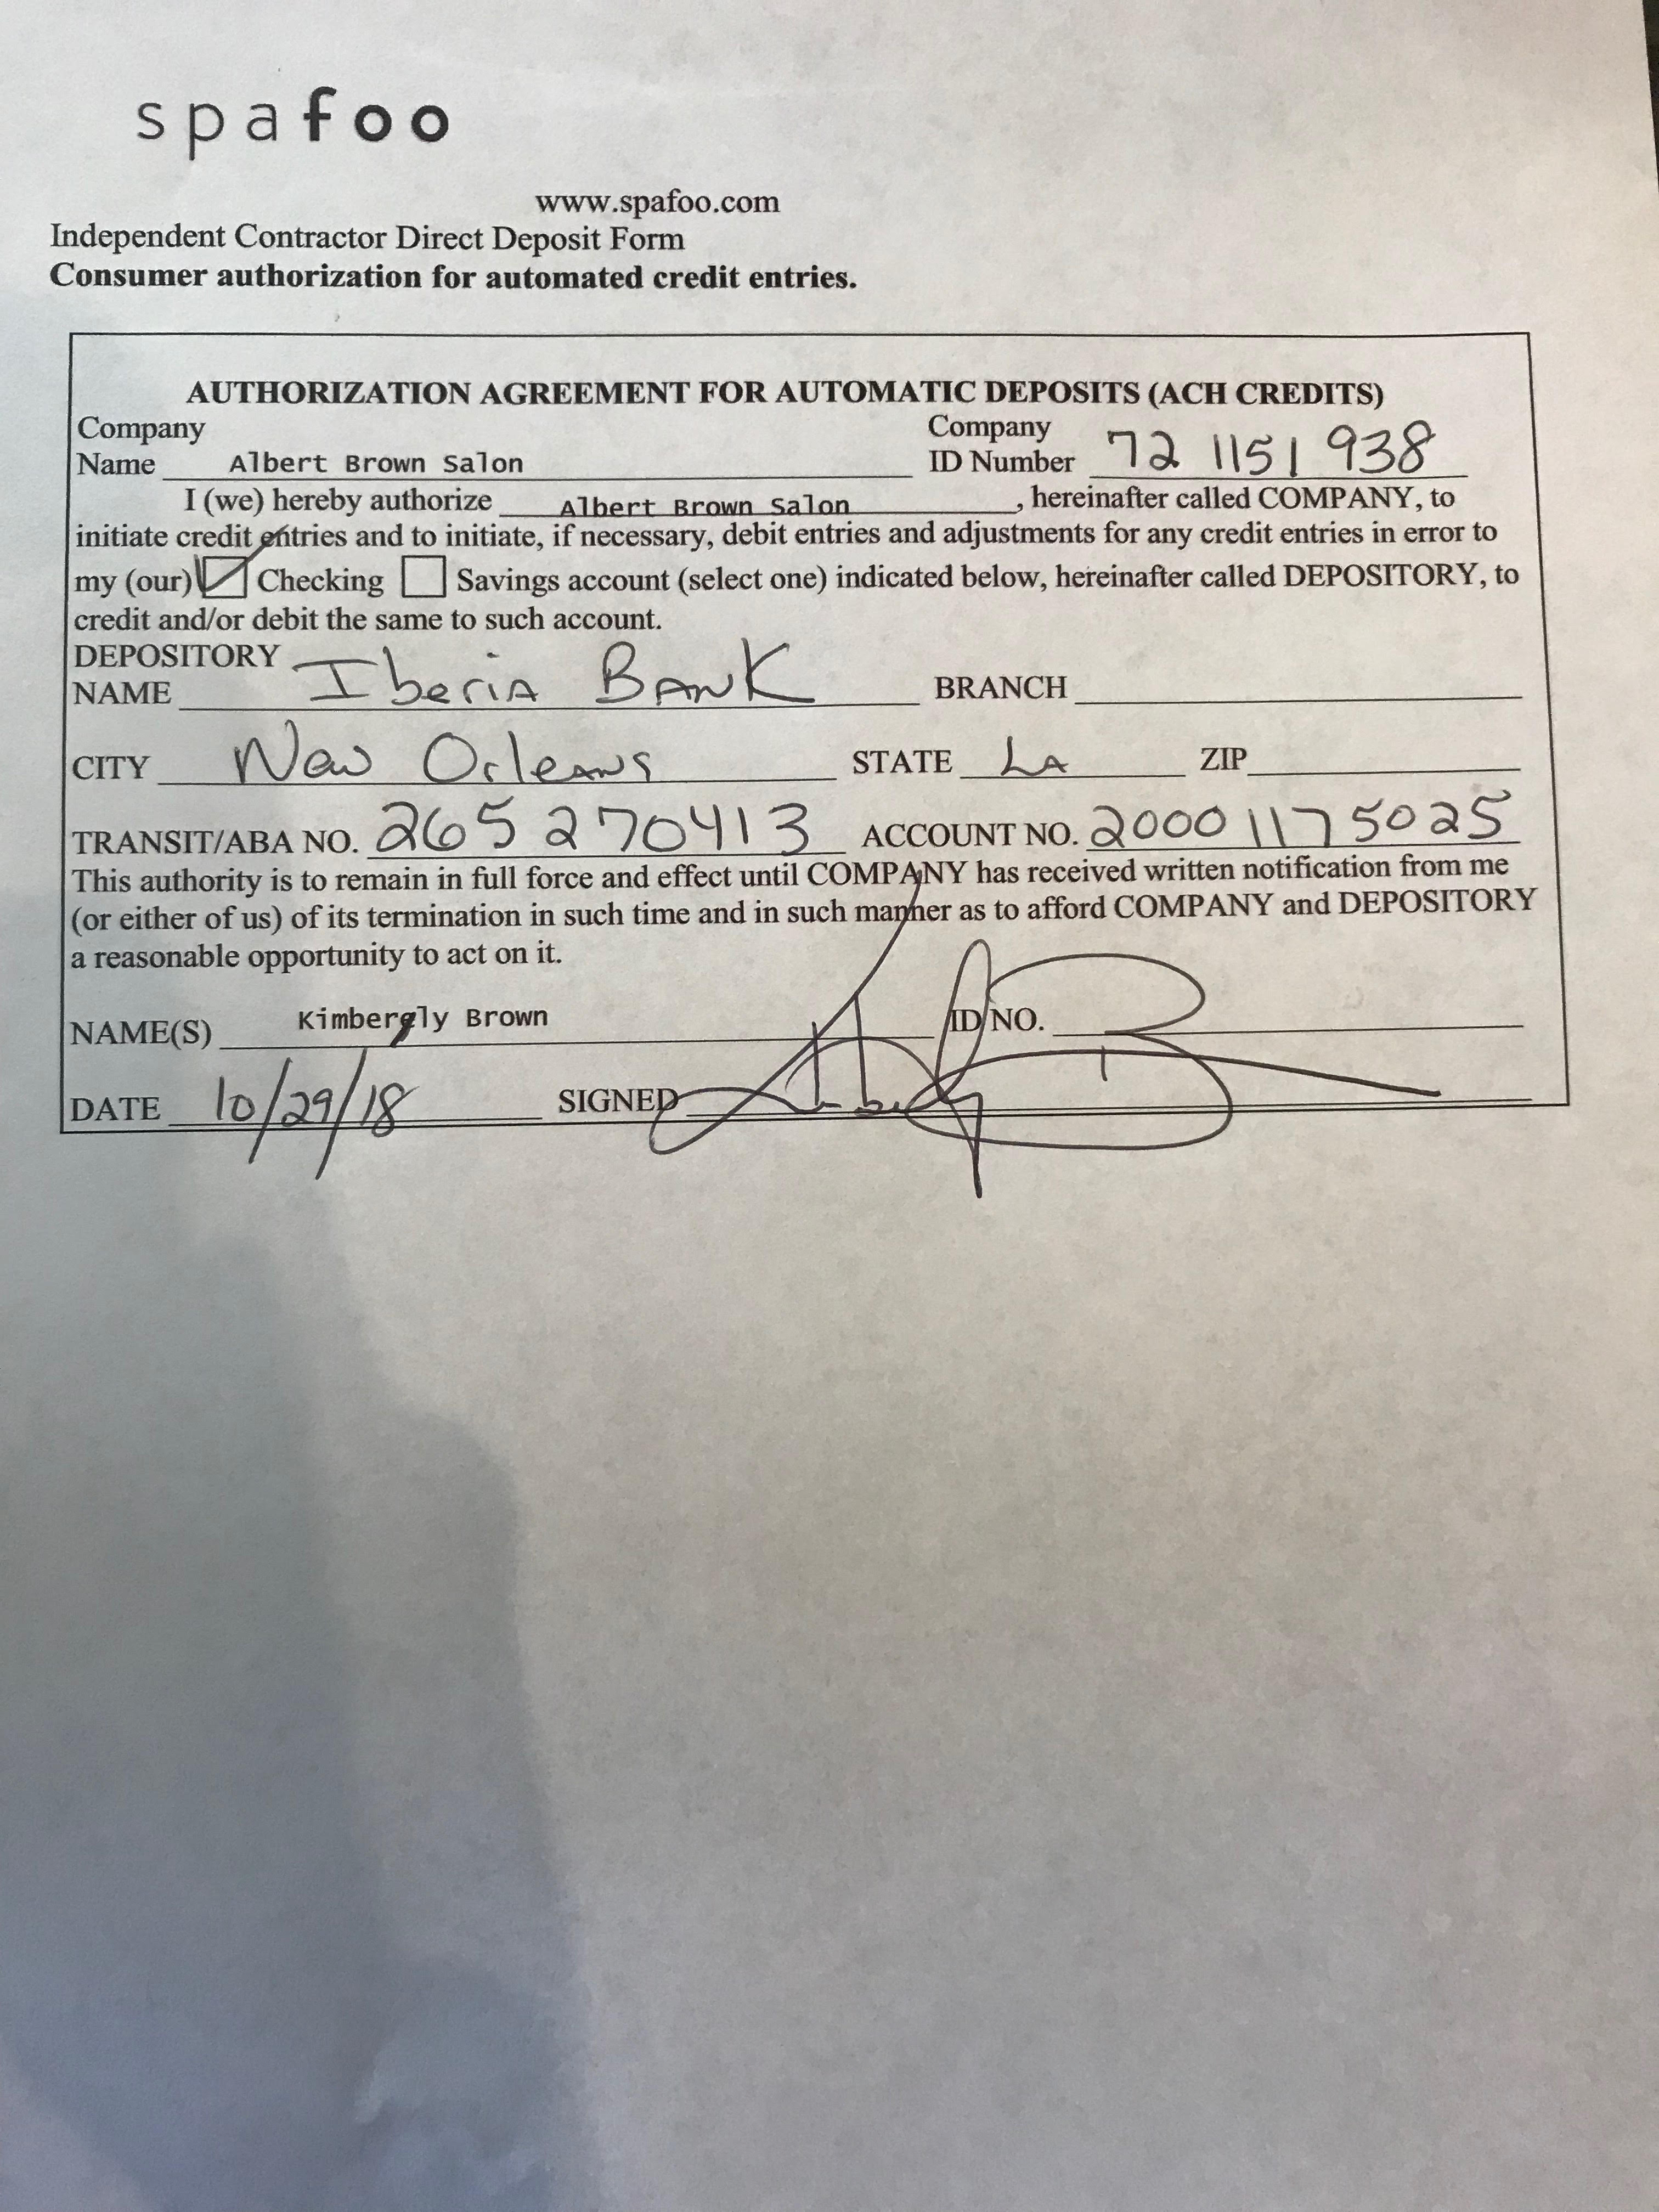 spafoo
www.spafoo.com
Independent Contractor Direct Deposit Form
Consumer authorization for automated credit entries.
AUTHORIZATION AGREEMENT FOR AUTOMATIC DEPOSITS (ACH CREDITS)
Company Name Albert Brown Salon Company ID Number 72 1151 938
I (we) hereby authorize Albert Brown Salon, hereinafter called COMPANY, to
initiate credit entries and to initiate, if necessary, debit entries and adjustments for any credit entries in error to
my (our) Checking Savings account (select one) indicated below, hereinafter called DEPOSITORY, to
credit and/or debit the same to such account.
DEPOSITORY
NAME Iberia Bank BRANCH
CITY New Orleans STATE LA ZIP
TRANSIT/ABA NO. 265 270413 ACCOUNT NO. 20001175025
This authority is to remain in full force and effect until COMPANY has received written notification from me
(or either of us) of its termination in such time and in such manner as to afford COMPANY and DEPOSITORY
a reasonable opportunity to act on it.
NAME(S) Kimberly Brown ID NO.
DATE 10/29/18 SIGNED